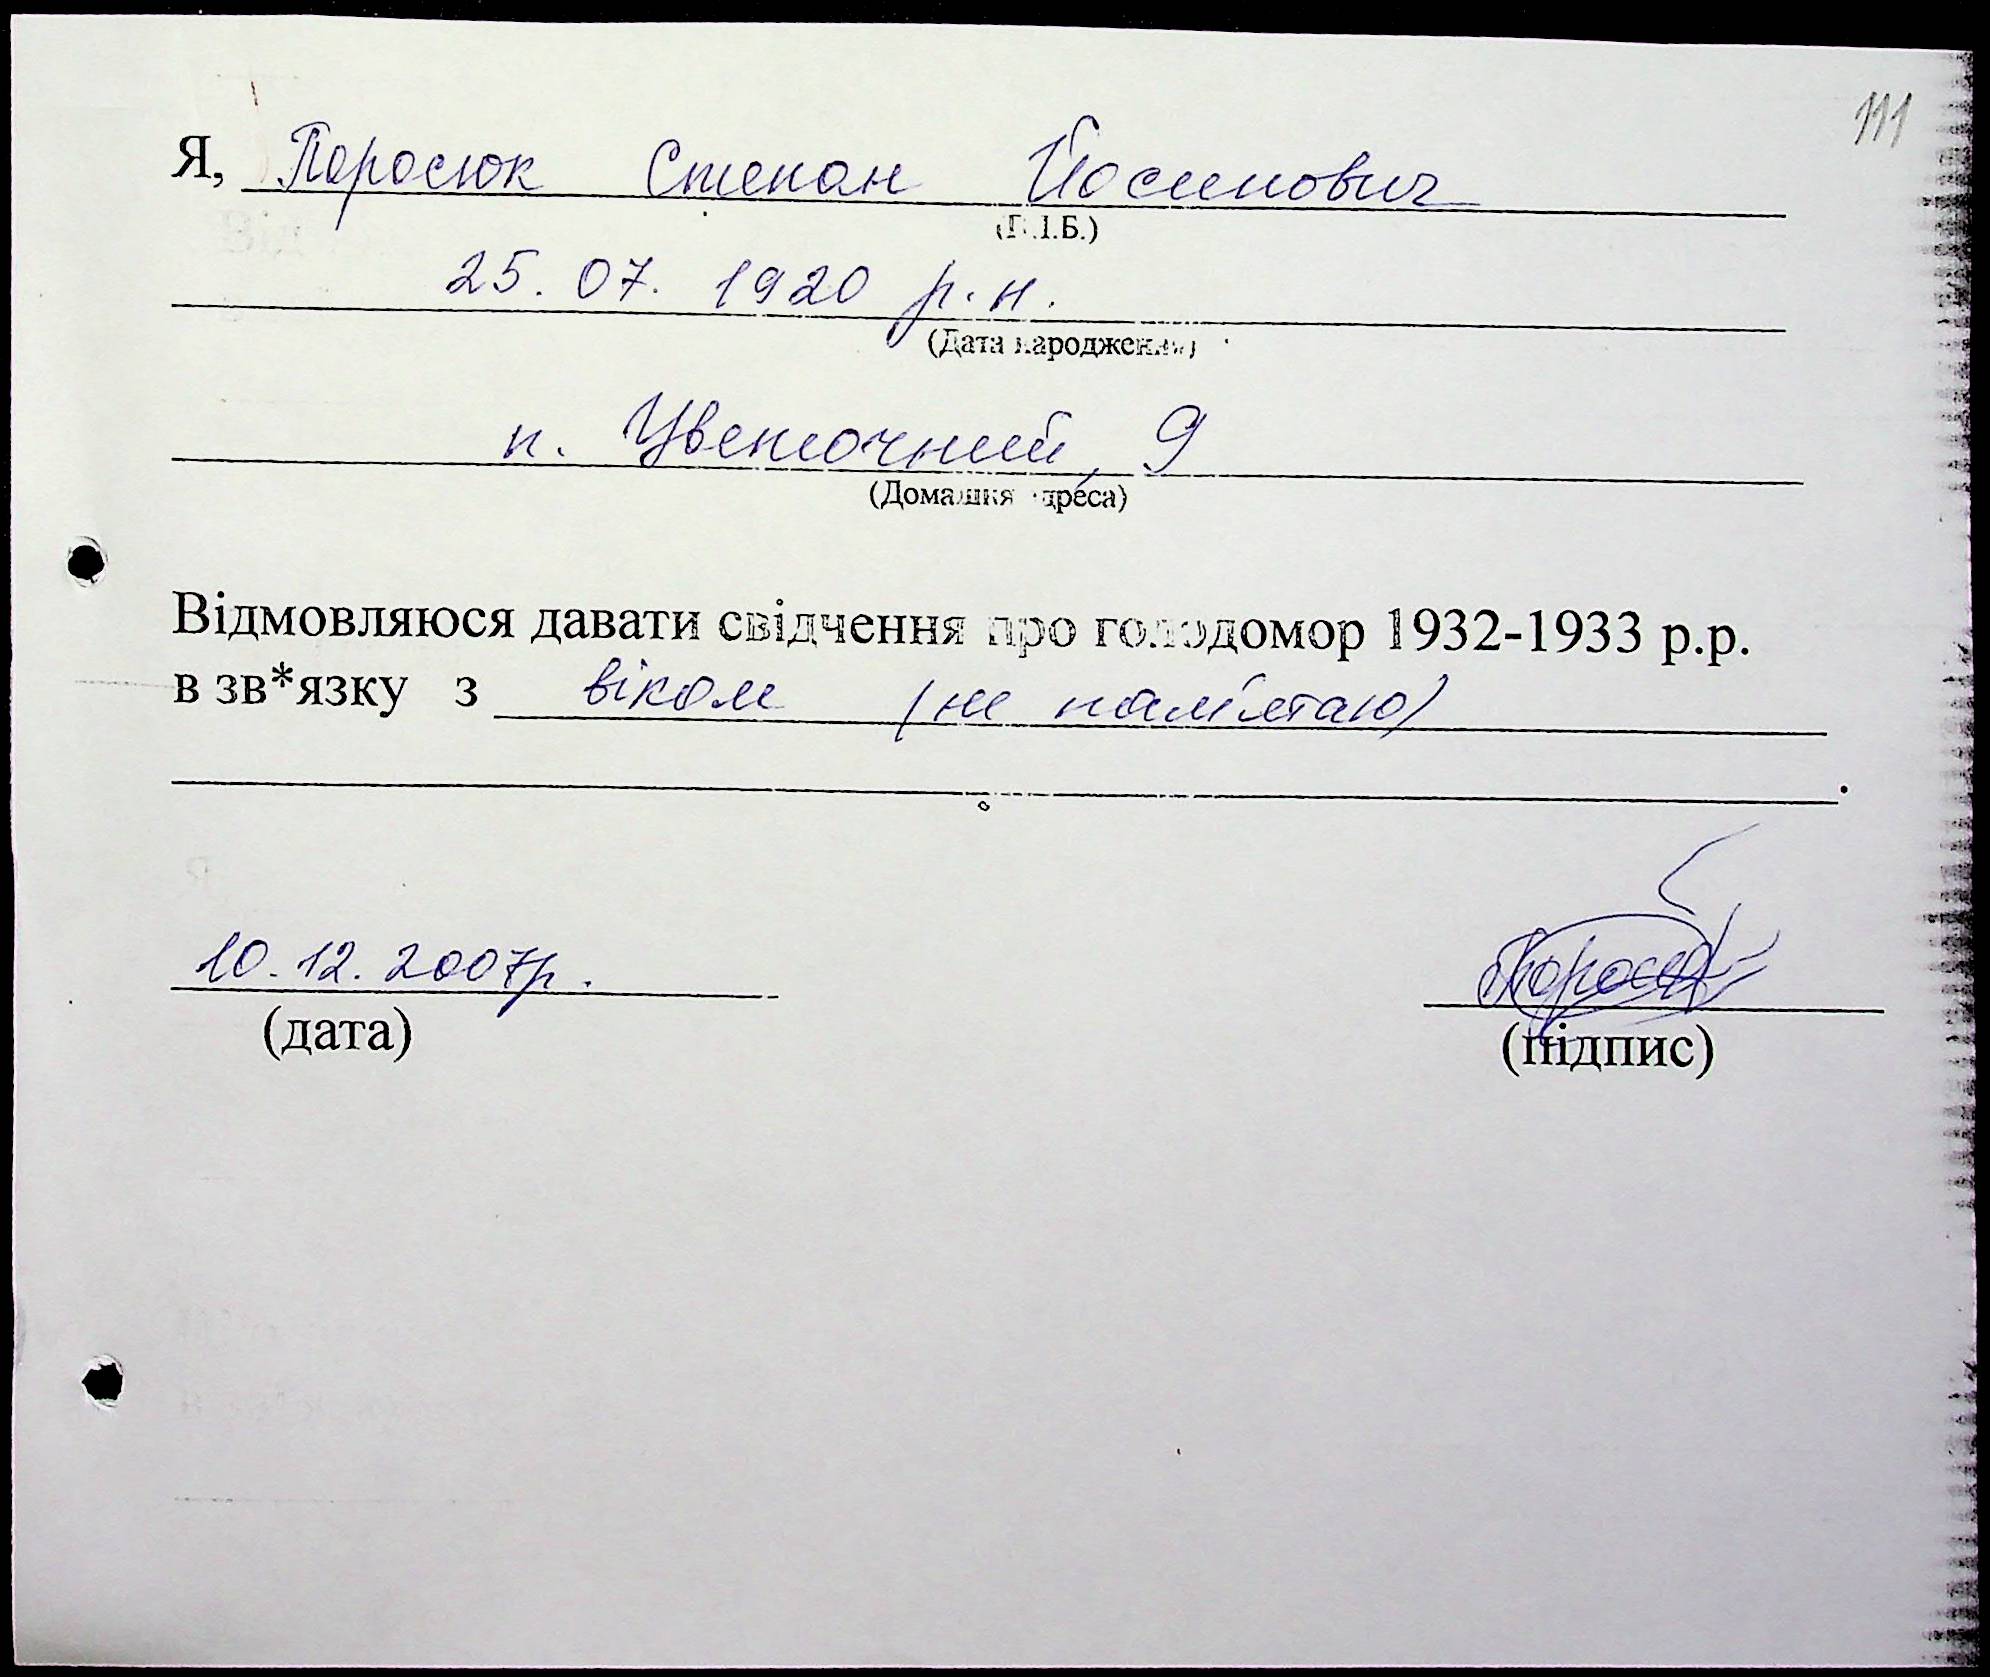 111
Я, Паросюк Степан Йосипович
(П.І.Б.)
25.07.1920 р.н.
(Дата народження)
п. Цветочний, 9
(Домашня адреса)
Відмовляюся давати свідчення про голодомор 1932-1933 р.р.
в зв*язку з віком (не пам'ятаю)
.
10.12.2007р.
(дата)
(підпис)